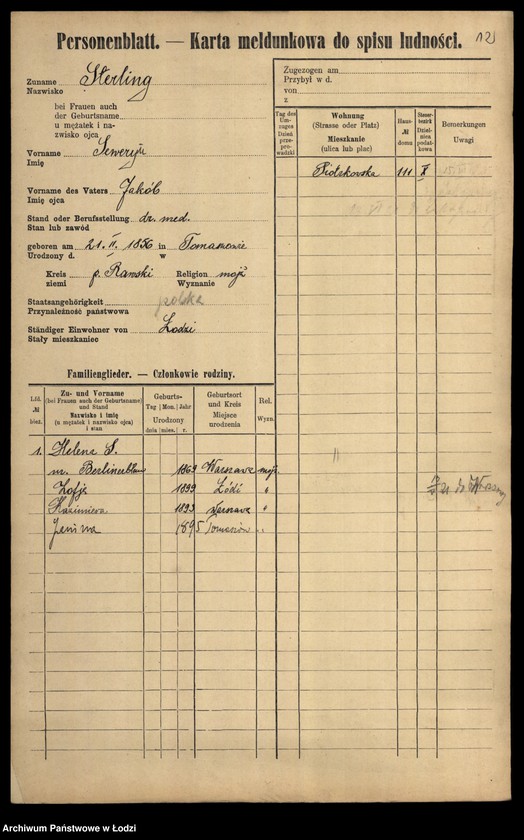 12
Personenblatt. — Karta meldunkowa do spisu ludności.
Zuname Sterling
Nazwisko
bei Frauen auch
der Geburtsname
u mężatek i na-
zwisko ojca
Vorname Seweryn
Imię
Vorname des Vaters Jakób
Imię ojca
Stand oder Berufsstellung dr. med.
Stan lub zawód
geboren am 21. II. 1856 in Tomaszowie
Urodzony d. w
Kreis p. Rawski Religion mojż
ziemi Wyznanie
Staatsangehörigkeit polska
Przynależność państwowa
Ständiger Einwohner von Łodzi
Stały mieszkaniec
Familienglieder. — Członkowie rodziny.
Lfd. № bież.
Zu- und Vorname
(bei Frauen auch der Geburtsname)
und Stand
Nazwisko i imię
(u mężatek i nazwisko ojca)
i stan
Geburts-
Tag Mon. Jahr
Urodzony
dnia mies. r.
Geburtsort
und Kreis
Miejsce
urodzenia
Rel.
Wyzn.
1. Helena S.
1869 Warszawa mojż.
Zofja 1899 Łódź "
Kazimiera 1893 Warszawa "
Janina 1895 Tomaszów "
Zugezogen am
Przybył w d.
von
z
Tag des
Um-
zuges
Dzień
prze-
pro-
wadzki
Wohnung
(Strasse oder Platz)
Mieszkanie
(ulica lub plac)
Haus-
№
domu
Steuer-
bezirk
Dziel-
nica
podat-
kowa
Bemerkungen
Uwagi
Piotrkowska 111 X
Archiwum Państwowe w Łodzi